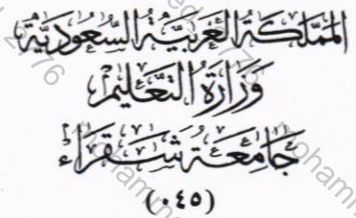 المملكة العربية السعودية
وزارة التعليم
جامعة شقراء
(٠٤٥)